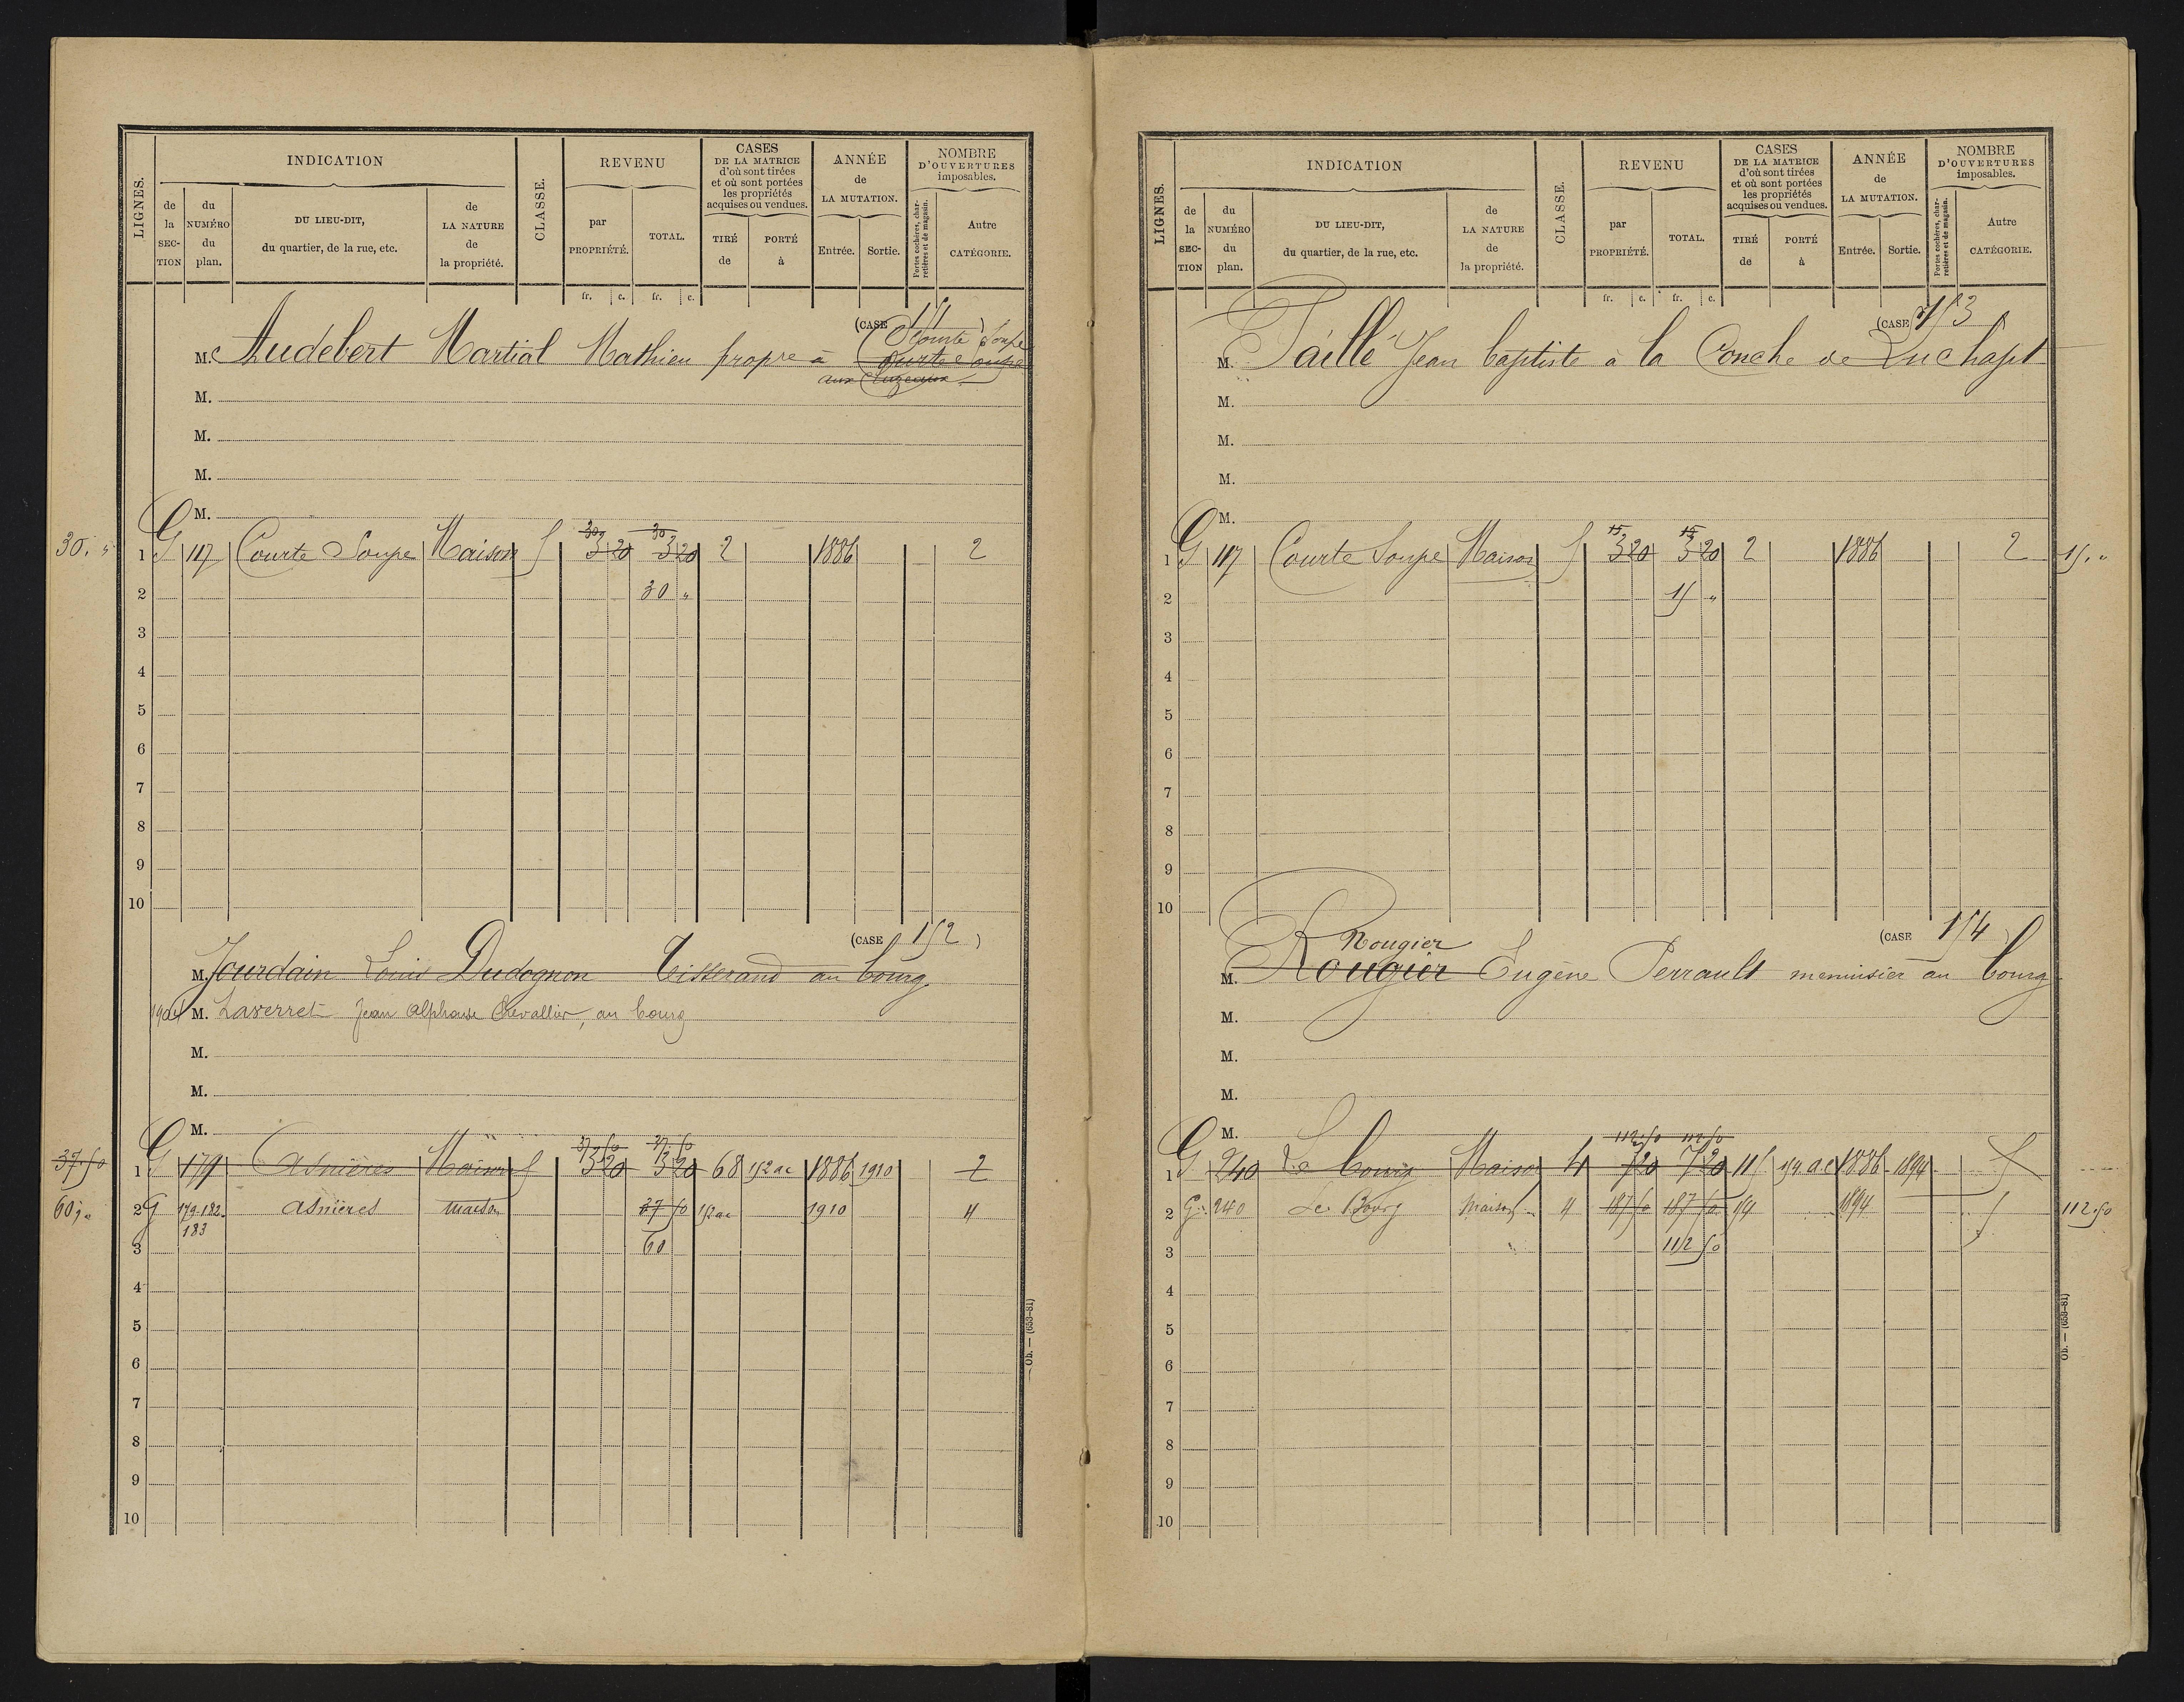 LIGNES.
INDICATION
de la SECTION
du NUMÉRO du plan.
DU LIEU-DIT, du quartier, de la rue, etc.
de LA NATURE de la propriété.
CLASSE.
REVENU
par PROPRIÉTÉ.
TOTAL.
CASES DE LA MATRICE d'où sont tirées et où sont portées les propriétés acquises ou vendues.
TIRÉ de
PORTÉ à
ANNÉE de LA MUTATION.
Entrée.
Sortie.
NOMBRE D'OUVERTURES imposables.
Portes cochères, charretières et de magasin.
Autre CATÉGORIE.
fr. c. fr. c.
(CASE 151)
Courte Soupe
M. Audebert Martial Mathieu propre à Courte Soupe
aux
M.
M.
M.
M.
30. "
1 G 117 Courte Soupe Maison 5 30 3 20 30 3 20 2 1886 2
2 30 "
3
4
5
6
7
8
9
10
(CASE 152)
M. Jourdain Louis Dudognon Tisserand au bourg
M. Laverret Jean Alphonse Chevallier, au bourg
M.
M.
M.
37.50
1 G 179 Asnières Maison 5 37.50 3 20 37.50 3 20 68 152 ac 1886 1910 2
60, "
2 G 179-182-183 Asnières maison 37 50 152 ac 1910 4
3 60
4
5
6
7
8
9
10
Ob. — (653-81)
LIGNES.
INDICATION
de la SECTION
du NUMÉRO du plan.
DU LIEU-DIT, du quartier, de la rue, etc.
de LA NATURE de la propriété.
CLASSE.
REVENU
par PROPRIÉTÉ.
TOTAL.
CASES DE LA MATRICE d'où sont tirées et où sont portées les propriétés acquises ou vendues.
TIRÉ de
PORTÉ à
ANNÉE de LA MUTATION.
Entrée.
Sortie.
NOMBRE D'OUVERTURES imposables.
Portes cochères, charretières et de magasin.
Autre CATÉGORIE.
fr. c. fr. c.
(CASE 153)
M. Paillé Jean baptiste à la Conche de Luchapt
M.
M.
M.
M.
1 G 117 Courte Soupe Maison 5 15 3 20 15 3 20 2 1886 2 15. "
2 15 "
3
4
5
6
7
8
9
10
(CASE 154)
Rougier
M. Rougier Eugène Perrault menuisier au bourg
M.
M.
M.
M.
1 G 240 Le bourg Maison 4 112.50 7 20 112.50 7 20 115 154 ac 1886 1894 5
2 G 240 Le Bourg Maison 4 187 50 187 50 154 1894 5 112.50
3 112 50
4
5
6
7
8
9
10
Ob. — (653-81)